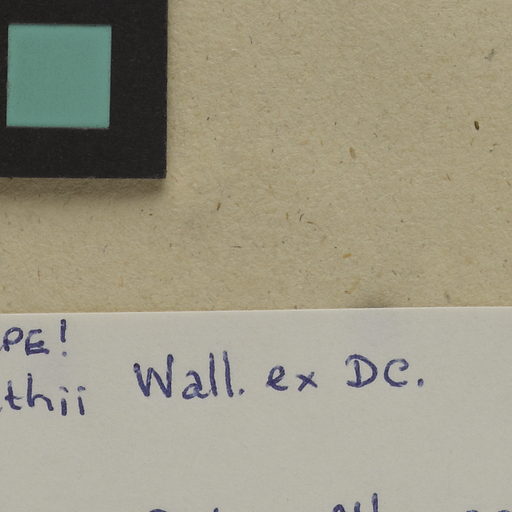 PE!
thii Wall. ex DC.